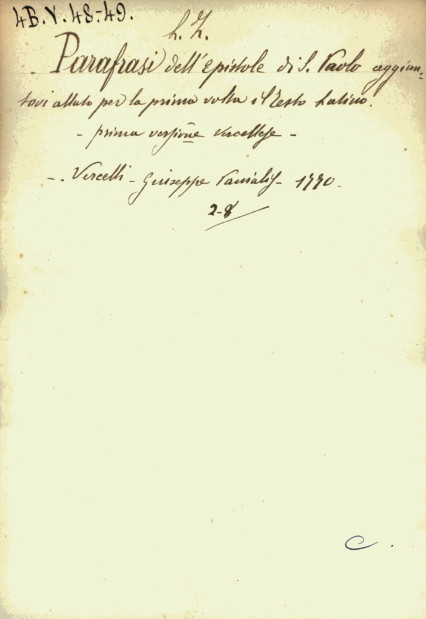 4B.V.48-49.
L. Z.
Parafrasi dell'Epistole di S. Paolo aggiun=
tovi allato per la prima volta il Testo Latino.
- prima versione vercellese -
-. Vercelli - Giuseppe Panialis - 1770-
2-8
C.